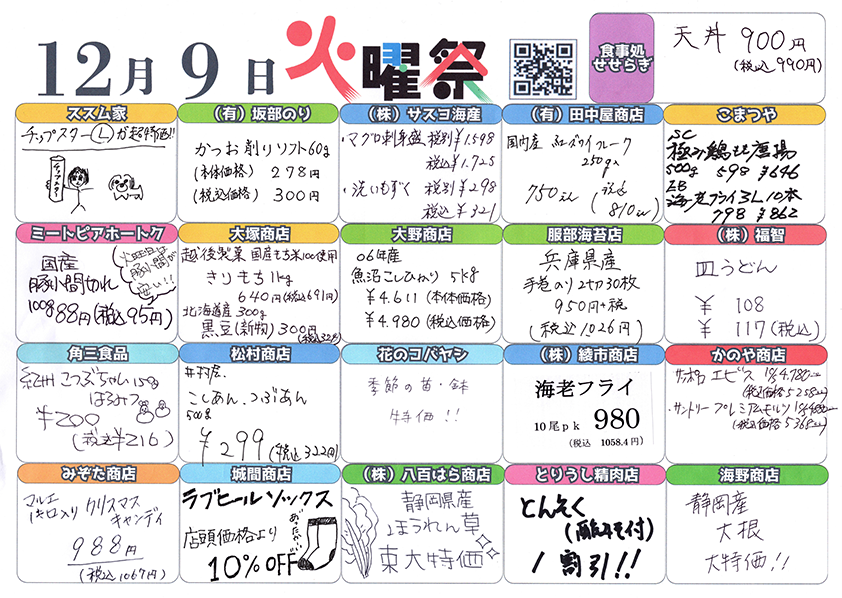 12月9日 火曜祭
食事処
せせらぎ
天丼 900円
(税込 990円)
ススム家
チップスターⓁが超特価!!
チップスター
(有)坂部のり
かつお削りソフト60g
(本体価格) 278円
(税込価格) 300円
(株)サスヨ海産
・マグロ刺身盛 税別¥1.598
税込¥1.725
・洗いもずく 税別¥298
税込¥321
(有)田中屋商店
国内産 紅ズワイフレーク
250g入
750
こまつや
SC
極み鶏もも唐揚
500g 598 ¥646
海老フライ3L10本
798 ¥862
ミートピアホートク
国産
豚小間切れ
100g 88円(税込95円)
火曜日は
豚小間が
安い!!
大塚商店
越後製菓 国産もち米100使用
きりもち1kg
640円(税込691円)
北海道産 300g
黒豆(新物)300円
大野商店
06年産
魚沼こしひかり 5kg
¥4.611(本体価格)
¥4.980(税込価格)
服部海苔店
兵庫県産
手巻のり2切30枚
950円+税
(税込1026円)
(株)福智
皿うどん
¥ 108
¥ 117(税込)
角三食品
紀州 こつぶちゃん 150g
はちみつ
¥200
(税込¥216)
松村商店
井村屋.
こしあん.つぶあん
500g
¥299(税込322円)
花のコバヤシ
季節の苗・鉢
特価!!
(株)綾市商店
海老フライ
10尾pk 980
(税込 1058.4円)
かのや商店
サッポロ エビス
(税込価格5258円)
・サントリー プレミアムモルツ
(税込価格5368円)
みぞた商店
マルエ
1キロ入り クリスマス
キャンディ
988円
(税込1067円)
城間商店
ラブヒールソックス
店頭価格より
10%OFF
あったかい
(株)八百はら商店
静岡県産
ほうれん草
東大特価
とりうし精肉店
とんそく
(酢みそ付)
1割引!!
海野商店
静岡産
大根
大特価!!